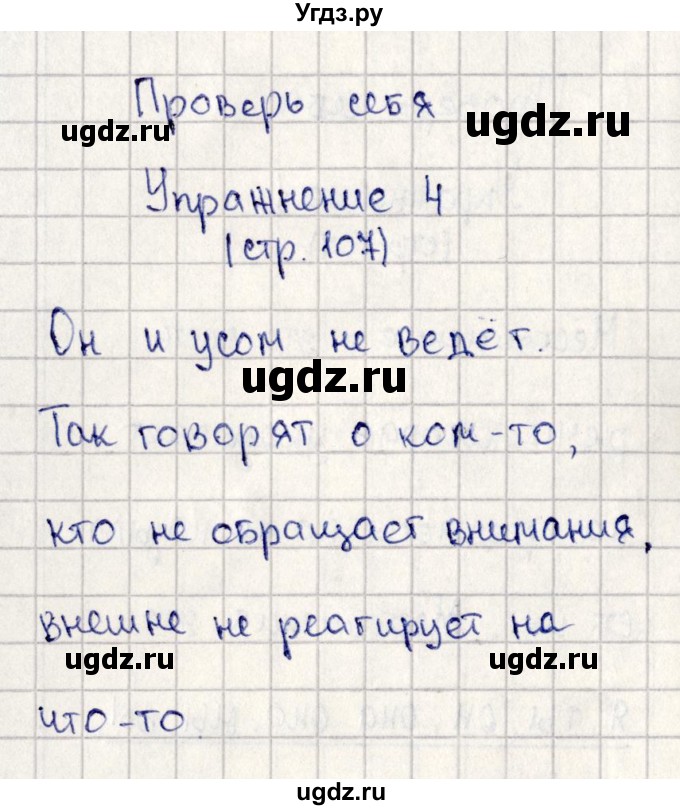 Угдз.ру
Проверь себя
ugdz.ru
ugdz.ru
Упражнение 4
(стр. 107)
Он и усом не ведёт.
ugdz.ru
Так говорят о ком-то,
кто не обращает внимания,
внешне не реагирует на
ugdz.ru
ugdz.ru
что-то
ugdz.ru